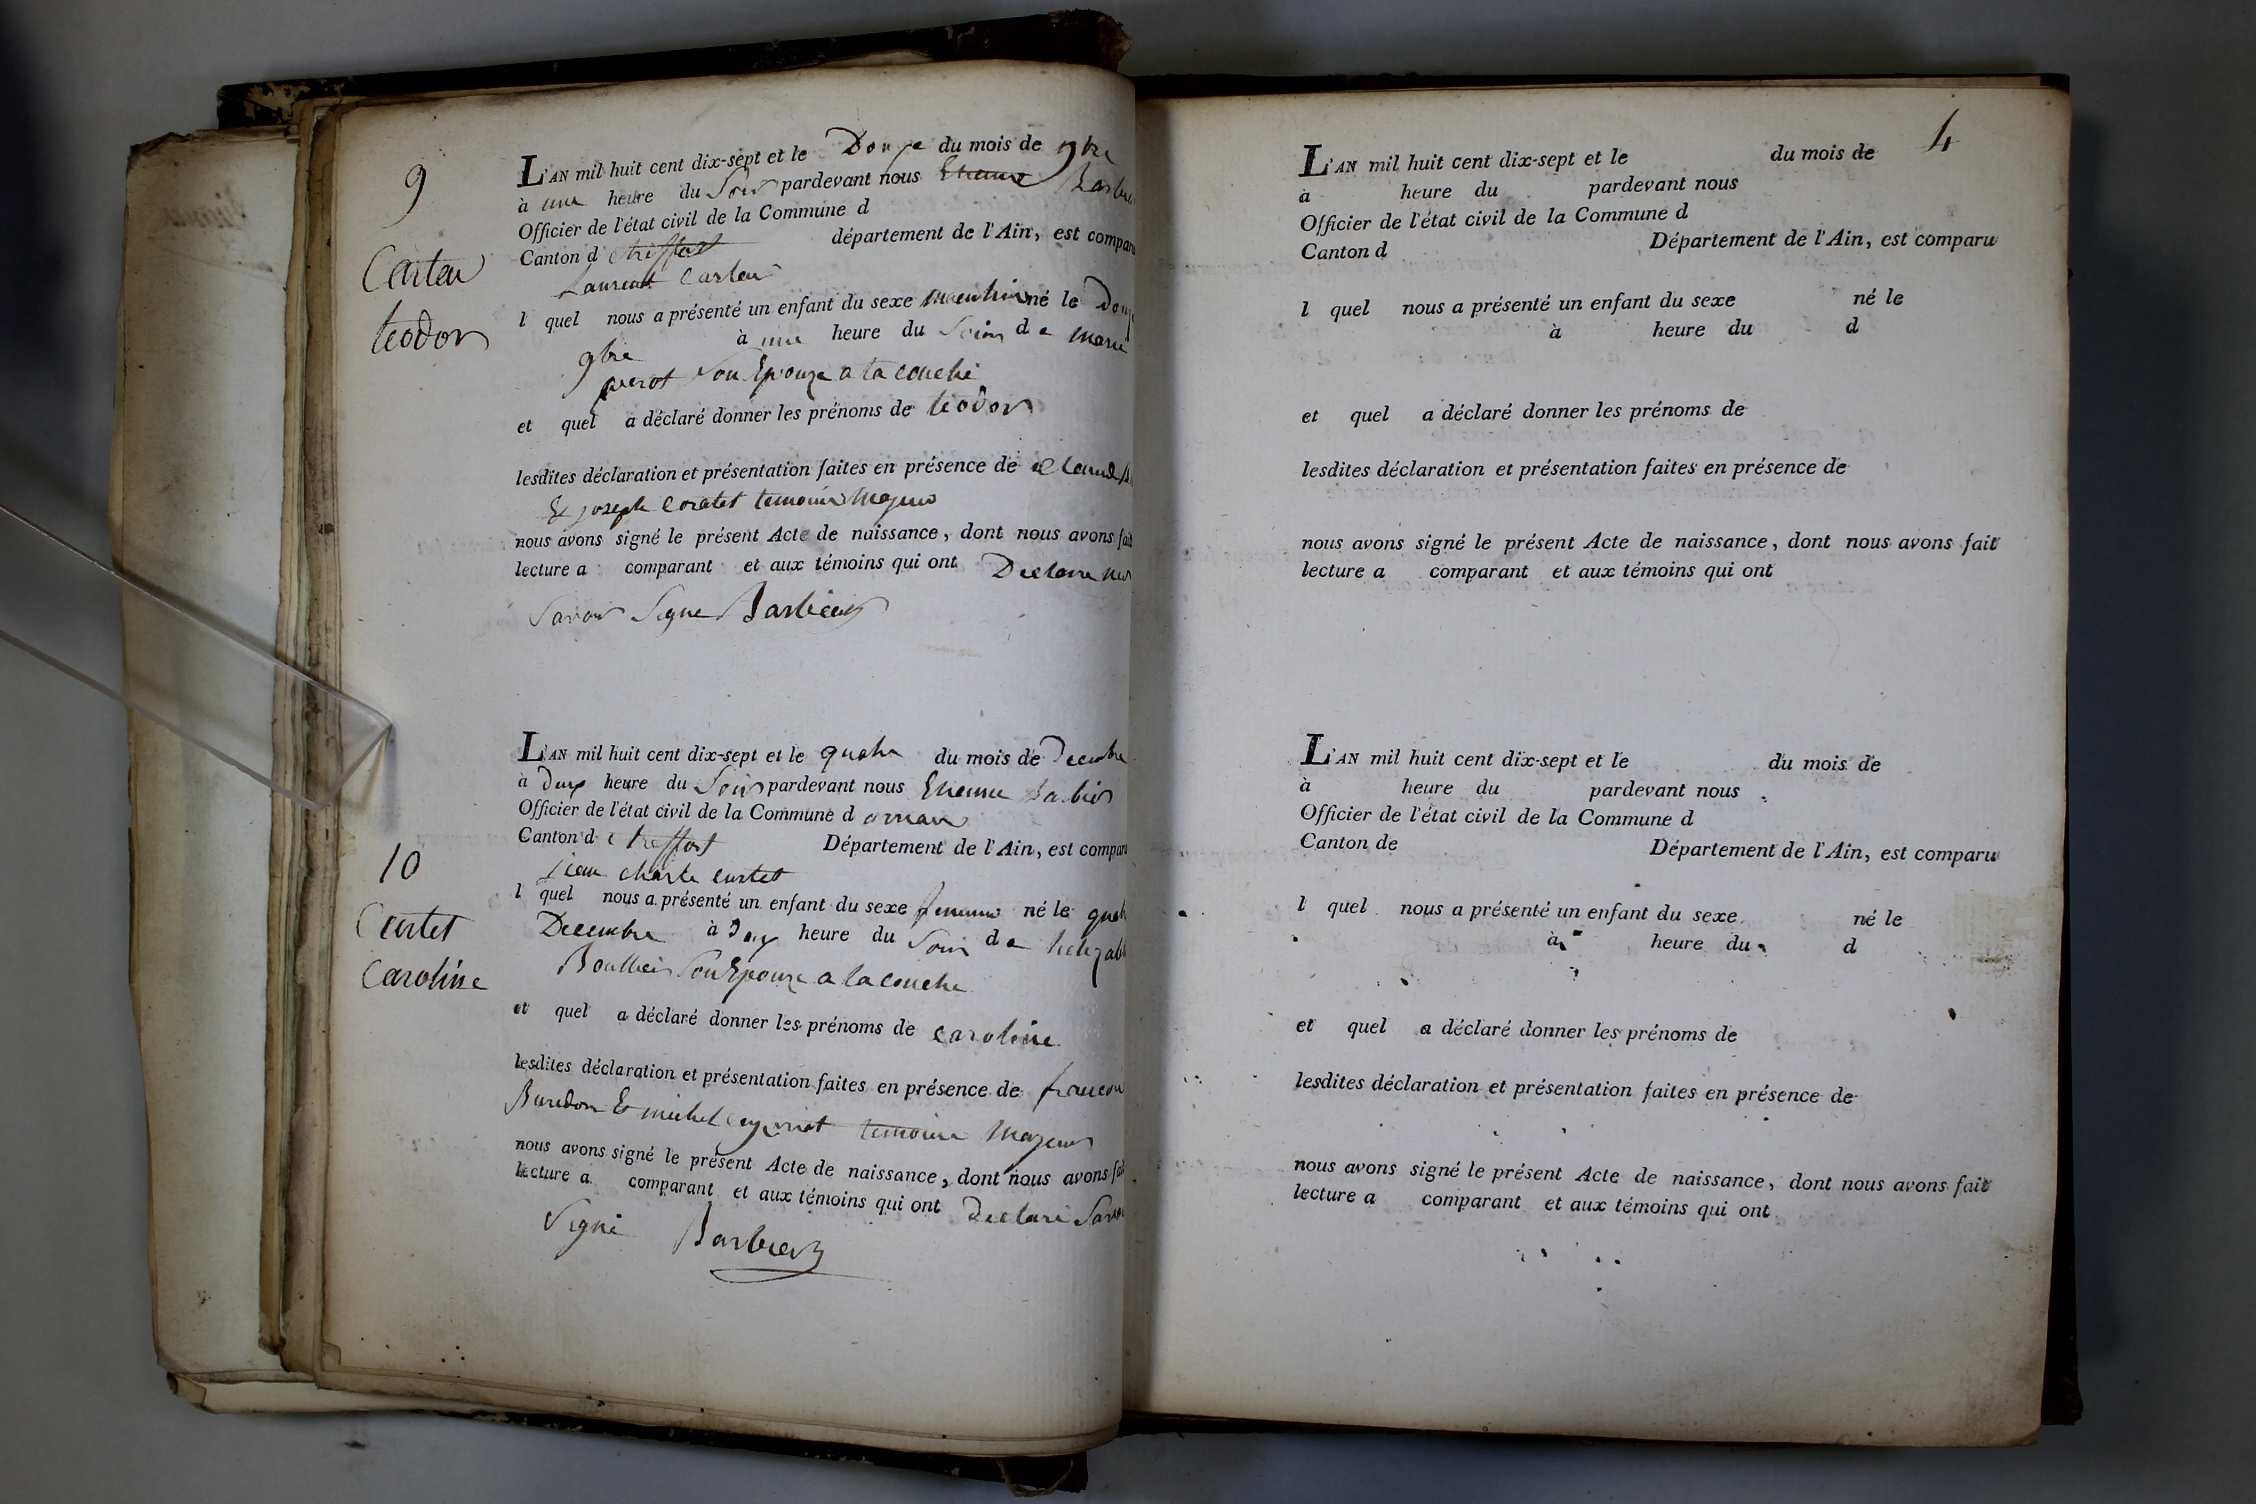 9
Carteu
teodor
L'AN mil huit cent dix-sept et le Douze du mois de 9bre
à une heure du Soir pardevant nous Etienne Barbier
Officier de l'état civil de la Commune d
Canton d treffort département de l'Ain, est comparu
Laurent Carteu
l quel nous a présenté un enfant du sexe masculin né le Douze
9bre à une heure du Soir de marie
perot Son Epouze a la couche
et quel a déclaré donner les prénoms de teodor
lesdites déclaration et présentation faites en présence de claude
Et joseph temoins Majeurs
nous avons signé le présent Acte de naissance, dont nous avons fait
lecture a comparant et aux témoins qui ont Declare
Savoir Signe Barbier
10
Curtet
Caroline
L'AN mil huit cent dix-sept et le quatre du mois de Decembre
à Deux heure du Soir pardevant nous Etienne Barbier
Officier de l'état civil de la Commune d
Canton d treffort Département de l'Ain, est comparu
jean curtet
l quel nous a présenté un enfant du sexe né le quatre
Decembre à Deux heure du Soir de
Son Epouze a la couche
et quel a déclaré donner les prénoms de caroline
lesdites déclaration et présentation faites en présence de francois
Buredon Et michel temoins Majeurs
nous avons signé le présent Acte de naissance, dont nous avons fait
lecture a comparant et aux témoins qui ont Declare Savoir
Signé Barbier
4
L'AN mil huit cent dix-sept et le du mois de
à heure du pardevant nous
Officier de l'état civil de la Commune d
Canton d Département de l'Ain, est comparu
l quel nous a présenté un enfant du sexe né le
à heure du d
et quel a déclaré donner les prénoms de
lesdites déclaration et présentation faites en présence de
nous avons signé le présent Acte de naissance, dont nous avons fait
lecture a comparant et aux témoins qui ont
L'AN mil huit cent dix-sept et le du mois de
à heure du pardevant nous
Officier de l'état civil de la Commune d
Canton de Département de l'Ain, est comparu
l quel nous a présenté un enfant du sexe né le
à heure du d
et quel a déclaré donner les prénoms de
lesdites déclaration et présentation faites en présence de
nous avons signé le présent Acte de naissance, dont nous avons fait
lecture a comparant et aux témoins qui ont